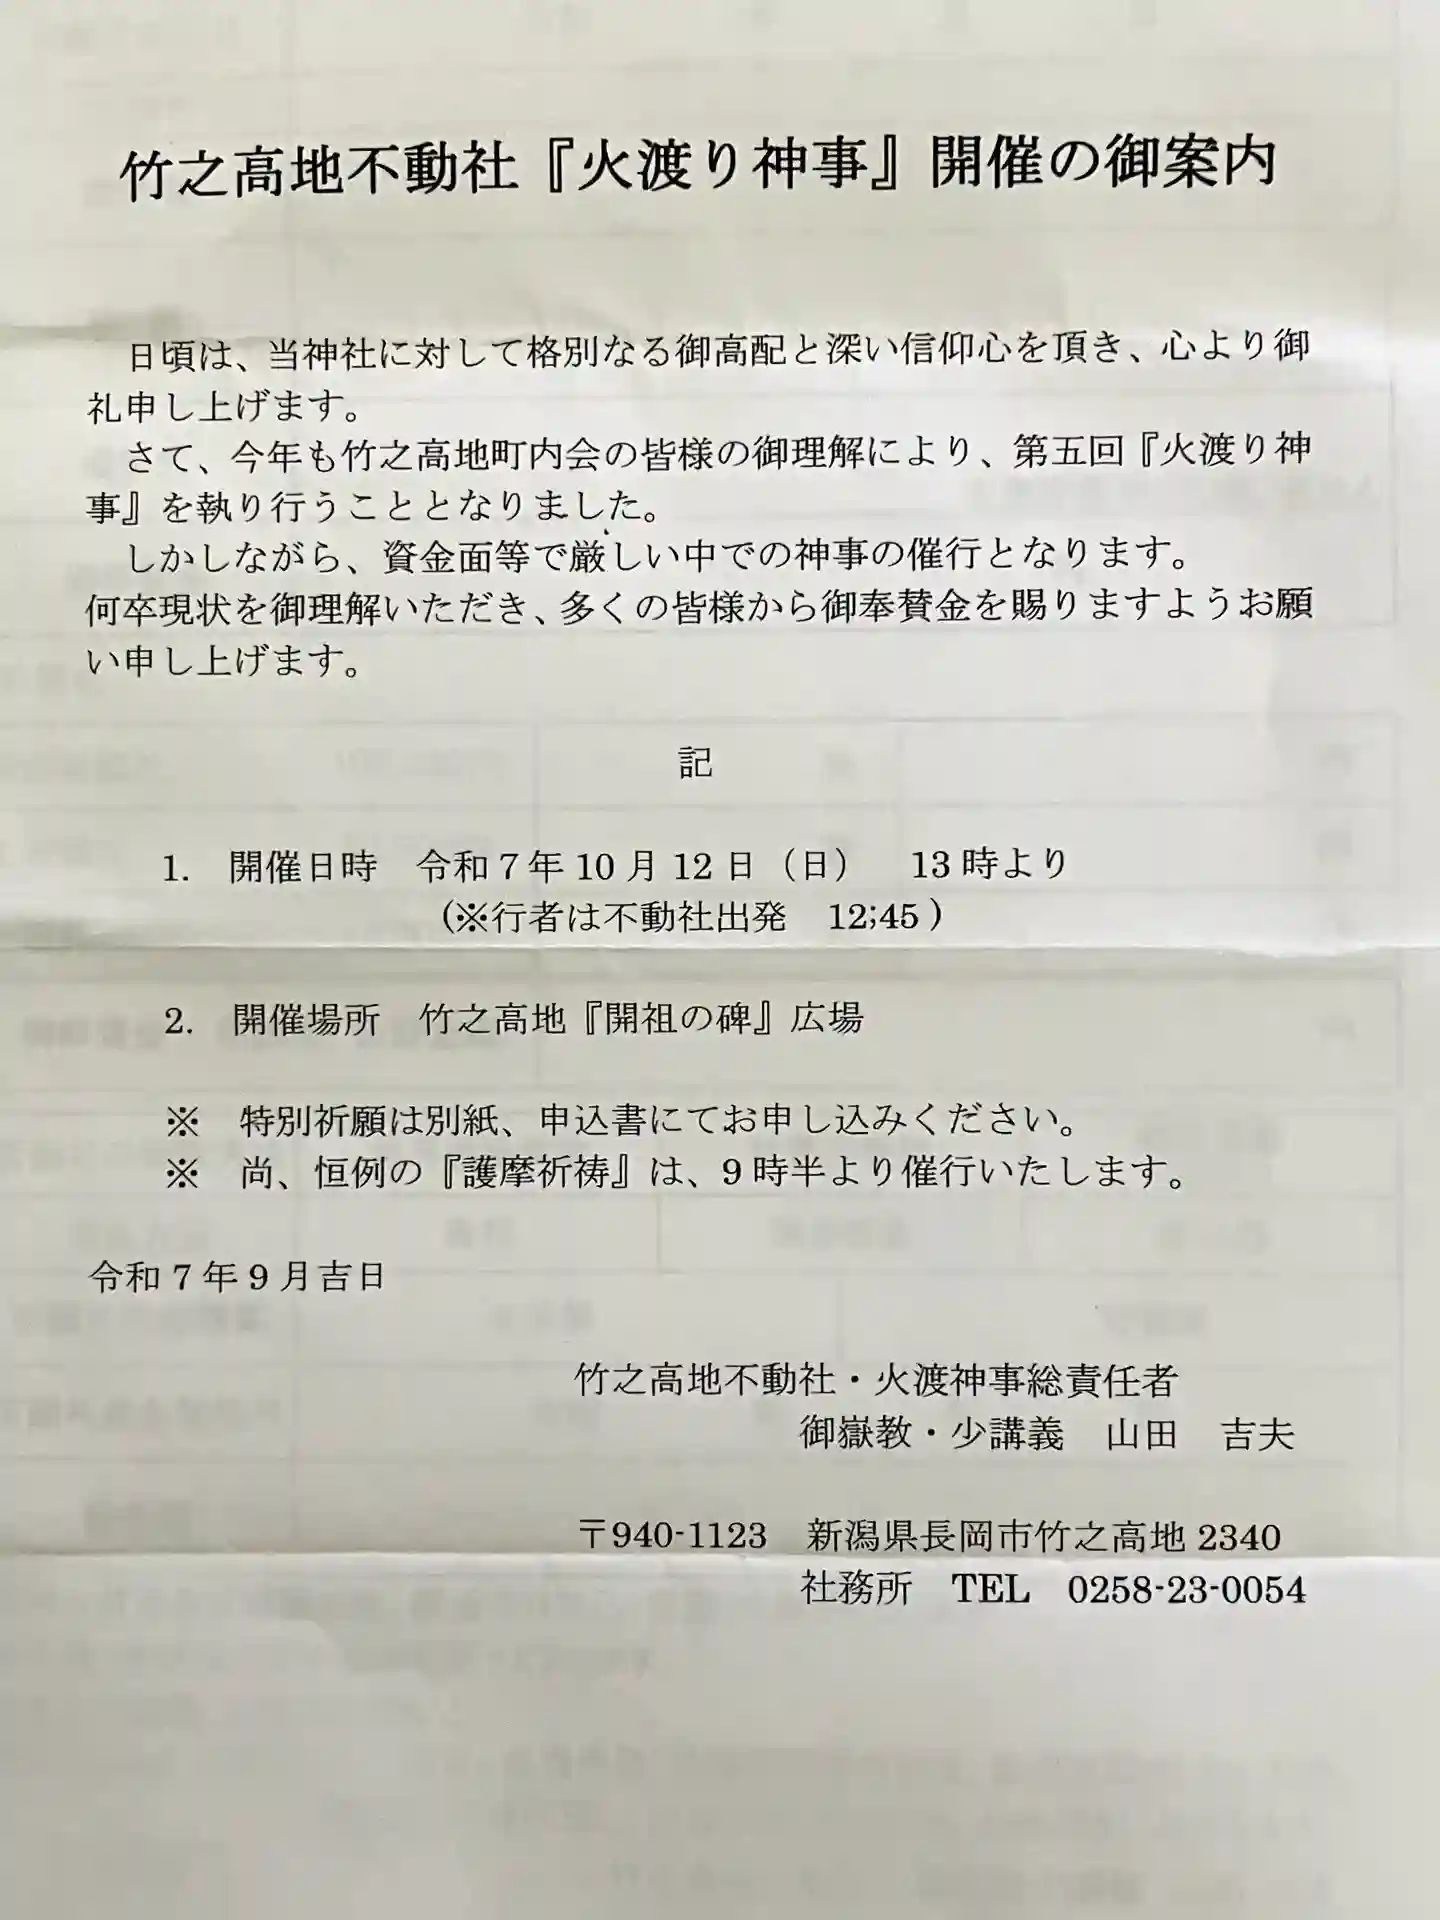 竹之高地不動社『火渡り神事』開催の御案内
日頃は、当神社に対して格別なる御高配と深い信仰心を頂き、心より御
礼申し上げます。
さて、今年も竹之高地町内会の皆様の御理解により、第五回『火渡り神
事』を執り行うこととなりました。
しかしながら、資金面等で厳しい中での神事の催行となります。
何卒現状を御理解いただき、多くの皆様から御奉賛金を賜りますようお願
い申し上げます。
記
1.　開催日時　令和７年 10 月 12 日（日）　13 時より
(※行者は不動社出発　12;45 )
2.　開催場所　竹之高地『開祖の碑』広場
※　特別祈願は別紙、申込書にてお申し込みください。
※　尚、恒例の『護摩祈祷』は、9 時半より催行いたします。
令和 7 年 9 月吉日
竹之高地不動社・火渡神事総責任者
御嶽教・少講義　山田　吉夫
〒940-1123　新潟県長岡市竹之高地 2340
社務所　TEL　0258-23-0054